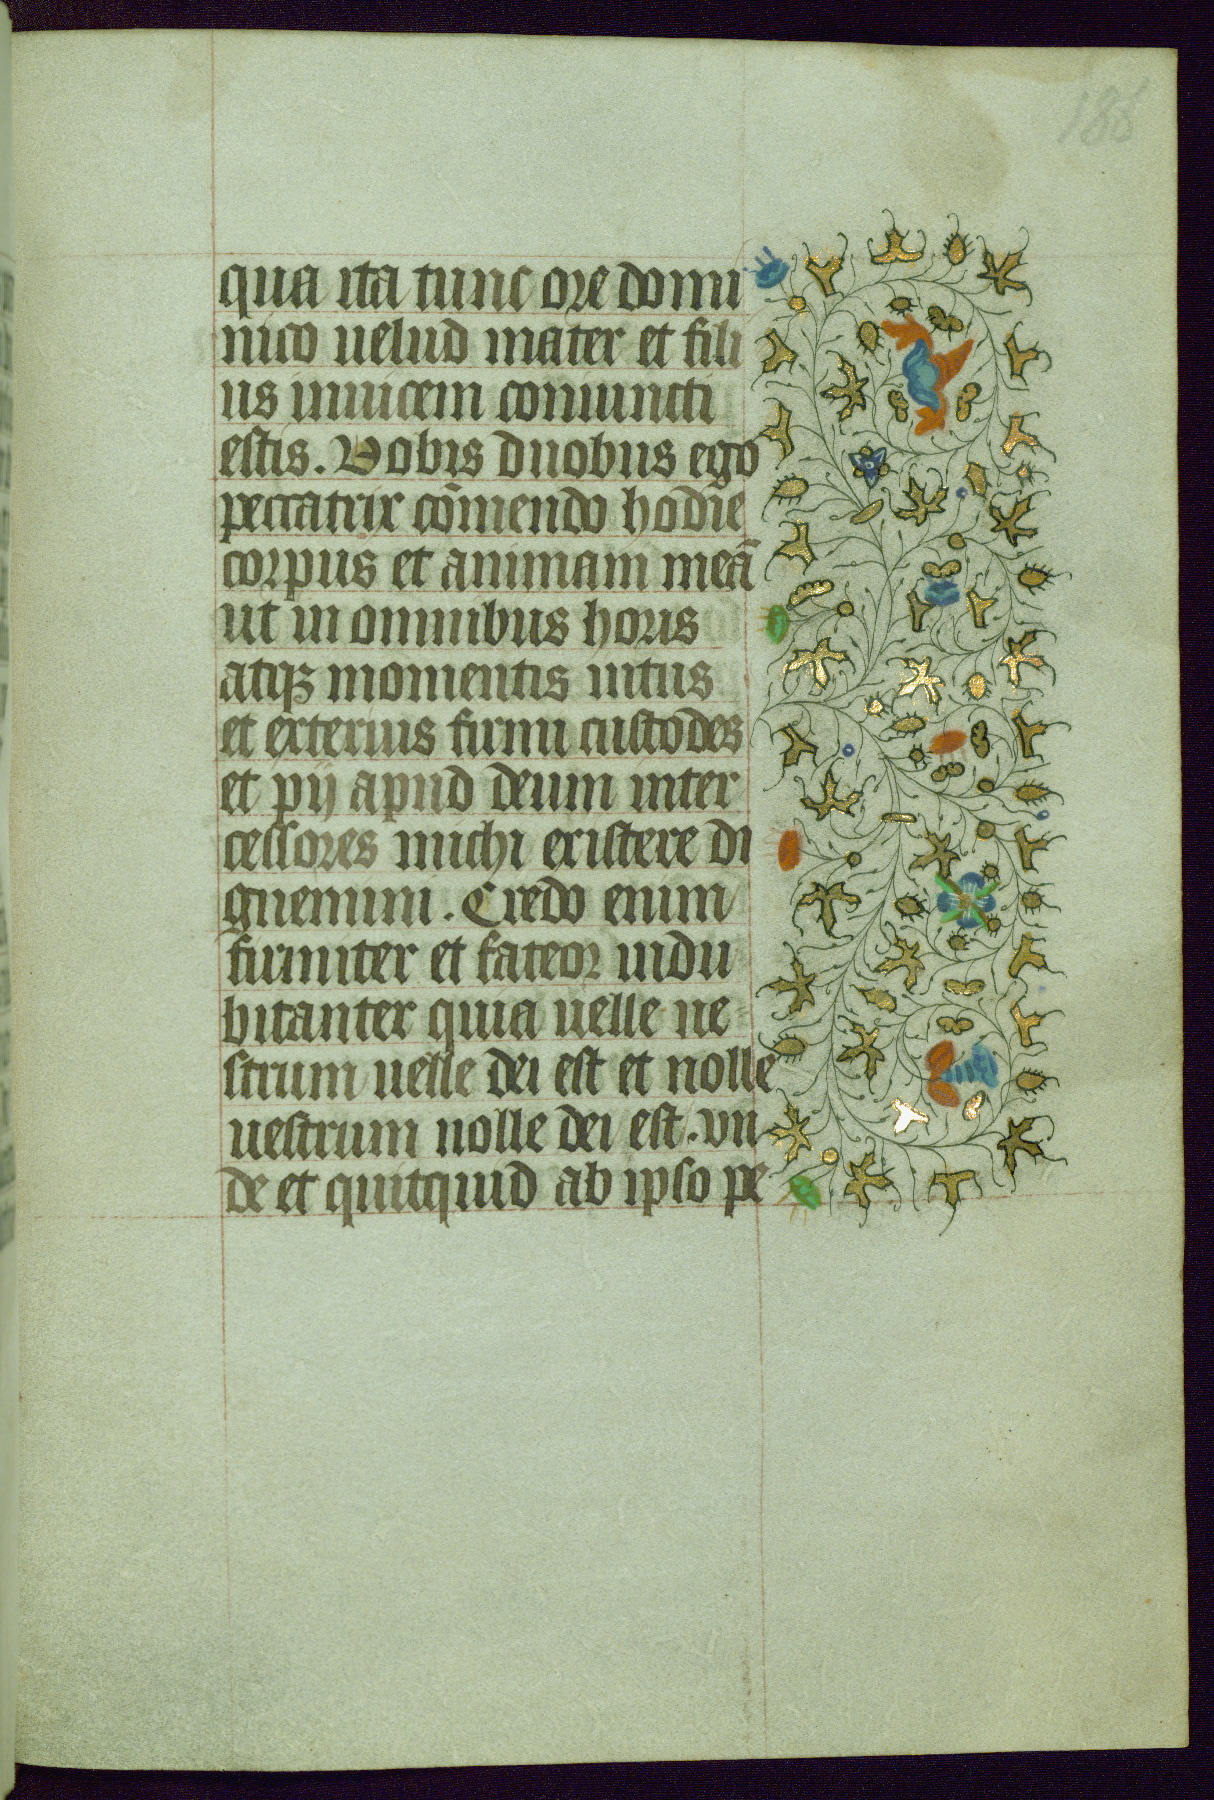 188
qua ita tunc ore domi
nico uelud mater et fili
us inuicem coniuncti
estis. Vobis duobus ego
peccatrix cōmendo hodie
corpus et animam meā
ut in omnibus horis
atqꝫ momentis intus
et exterius firmi custodes
et pij apud deum inter
cessores michi existere di
gnemini. Credo enim
firmiter et fateor indu
bitanter quia uelle ue
strum uelle dei est et nolle
uestrum nolle dei est. vn
de et quitquid ab ipso pe